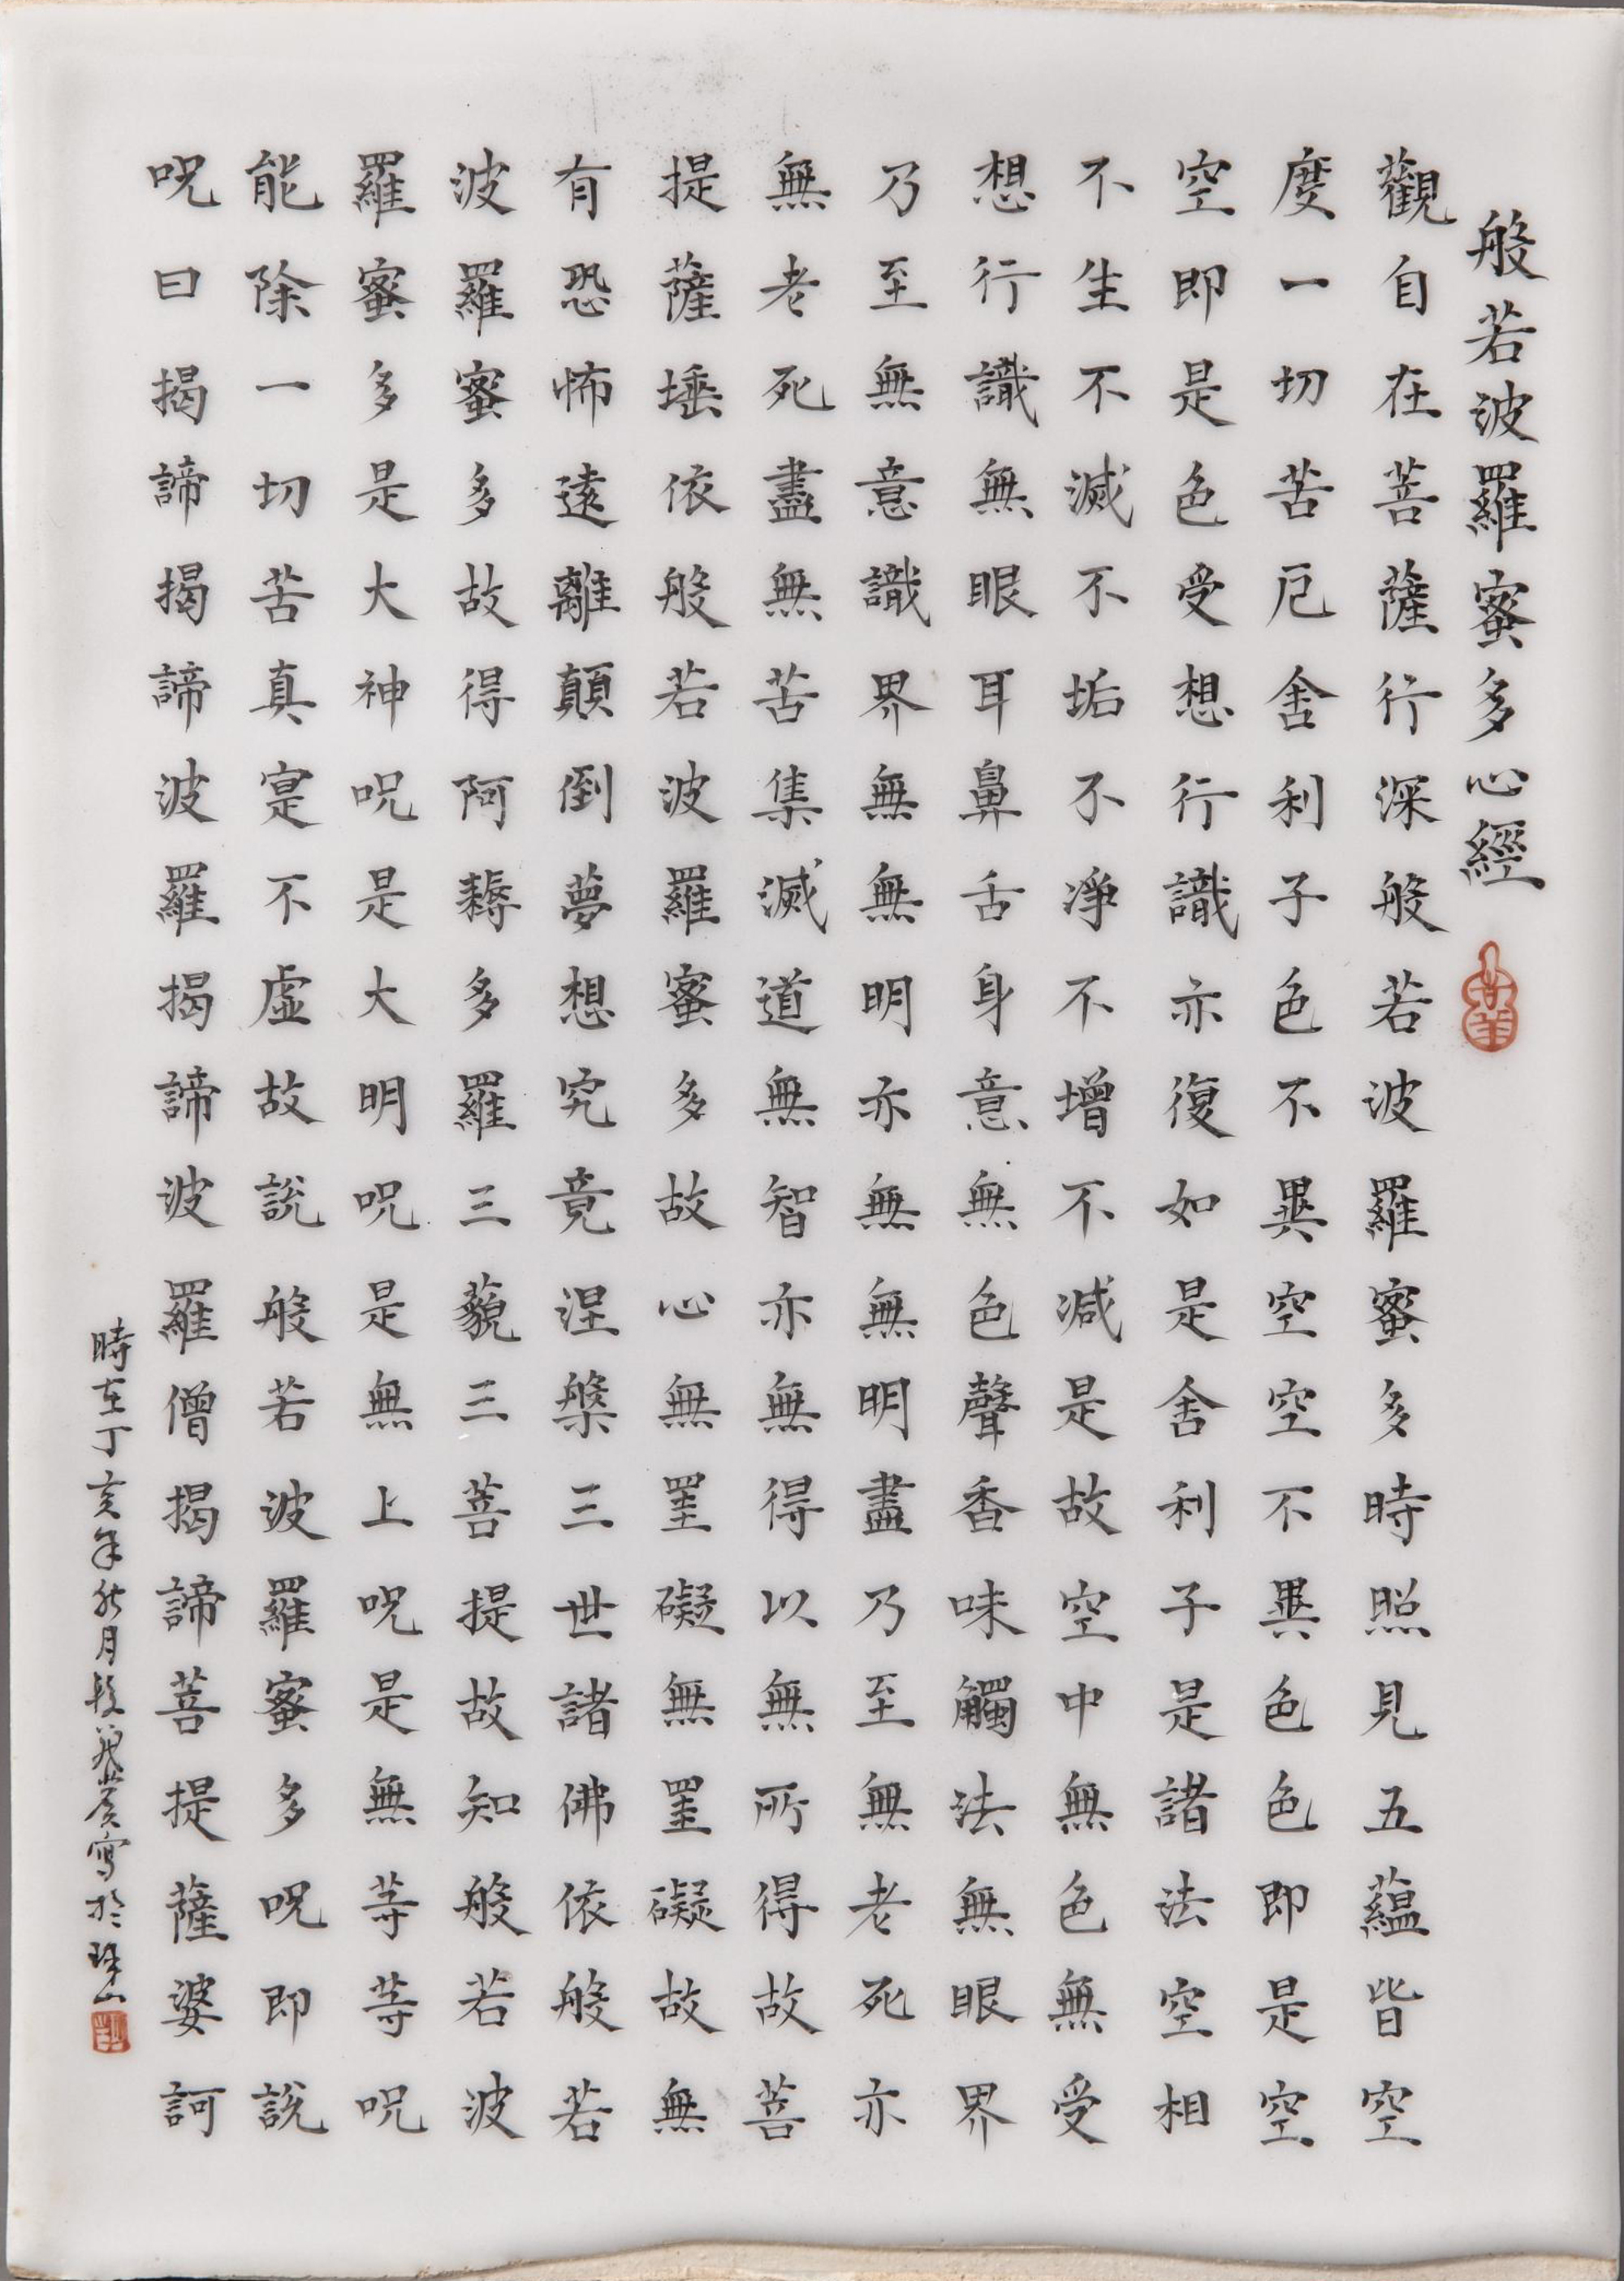 般若波羅蜜多心經
觀自在菩薩行深般若波羅蜜多時照見五蘊皆空
度一切苦厄舍利子色不異空空不異色色即是空
空即是色受想行識亦復如是舍利子是諸法空相
不生不滅不垢不凈不增不減是故空中無色無受
想行識無眼耳鼻舌身意無色聲香味觸法無眼界
乃至無意識界無無明亦無無明盡乃至無老死亦
無老死盡無苦集滅道無智亦無得以無所得故菩
提薩埵依般若波羅蜜多故心無罣礙無罣礙故無
有恐怖遠離顛倒夢想究竟涅槃三世諸佛依般若
波羅蜜多故得阿耨多羅三藐三菩提故知般若波
羅蜜多是大神呪是大明呪是無上呪是無等等呪
能除一切苦真寔不虛故說般若波羅蜜多呪即說
呪曰揭諦揭諦波羅揭諦波羅僧揭諦菩提薩婆訶
時在丁亥年秋月段寫於珠山